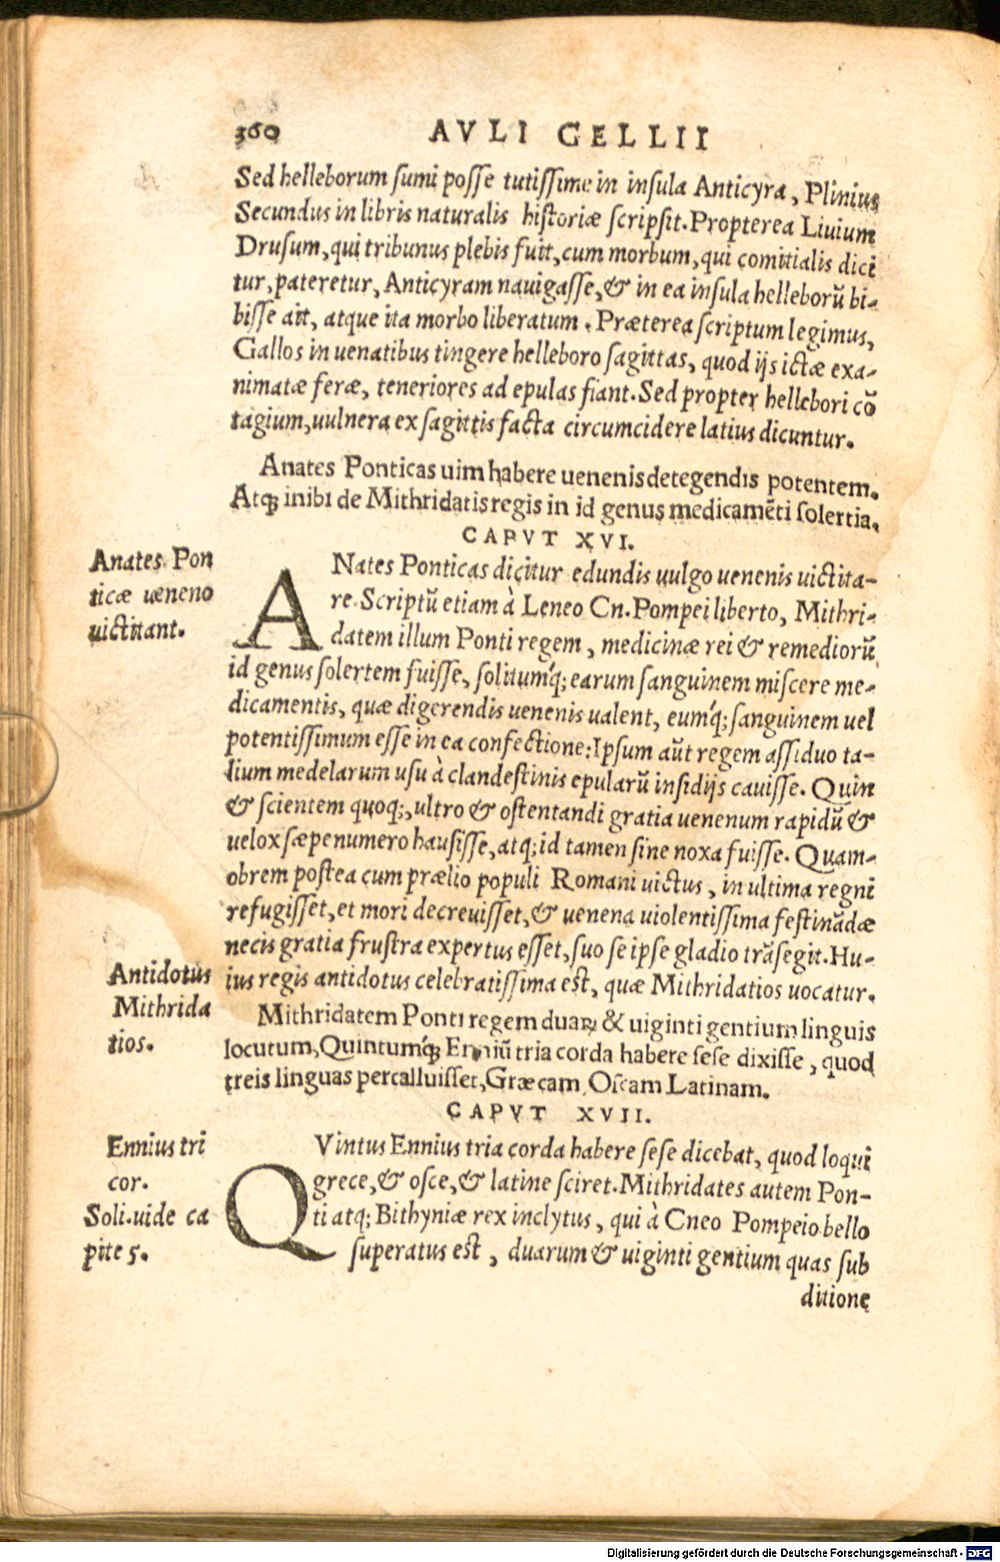 360 AVLI GELLII
Sed helleborum sumi posse tutissime in insula Anticyra, Plinius
Secundus in libris naturalis historiæ scripsit. Propterea Liuium
Drusum, qui tribunus plebis fuit, cum morbum, qui comitialis dici
tur, pateretur, Anticyram nauigasse, & in ea insula helleborũ bi-
bisse ait, atque ita morbo liberatum. Præterea scriptum legimus,
Gallos in uenatibus tingere helleboro sagittas, quod ijs ictæ exa-
nimatæ feræ, teneriores ad epulas fiant. Sed propter hellebori cõ
tagium, uulnera ex sagittis facta circumcidere latius dicuntur.
Anates Ponticas uim habere uenenis detegendis potentem.
Atq; inibi de Mithridatis regis in id genus medicamẽti solertia.
CAPVT XVI.
Anates Pon
ticæ ueneno
uictitant.
ANates Ponticas dicitur edundis uulgo uenenis uictita-
re. Scriptũ etiam à Leneo Cn. Pompei liberto, Mithri-
datem illum Ponti regem, medicinæ rei & remediorũ
id genus solertem fuisse, solitumq́; earum sanguinem miscere me-
dicamentis, quæ digerendis uenenis ualent, eumq́; sanguinem uel
potentissimum esse in ea confectione: Ipsum aũt regem assiduo ta-
lium medelarum usu à clandestinis epularũ insidijs cauisse. Quin
& scientem quoq;, ultro & ostentandi gratia uenenum rapidũ &
uelox sæpenumero hausisse, atq; id tamen sine noxa fuisse. Quam-
obrem postea cum prælio populi Romani uictus, in ultima regni
refugisset, et mori decreuisset, & uenena uiolentissima festinãdæ
necis gratia frustra expertus esset, suo se ipse gladio trãsegit. Hu-
ius regis antidotus celebratissima est, quæ Mithridatios uocatur.
Antidotus
Mithrida
tios.
Mithridatem Ponti regem duaꝝ & uiginti gentium linguis
locutum, Quintumq́; Enniũ tria corda habere sese dixisse, quod
treis linguas percalluisset, Græcam, Oscam Latinam.
CAPVT XVII.
Ennius tri
cor.
Soli. uide ca
pite 5.
QVintus Ennius tria corda habere sese dicebat, quod loqui
grece, & osce, & latine sciret. Mithridates autem Pon-
ti atq; Bithyniæ rex inclytus, qui à Cneo Pompeio bello
superatus est, duarum & uiginti gentium quas sub
ditione
Digitalisierung gefördert durch die Deutsche Forschungsgemeinschaft - DFG